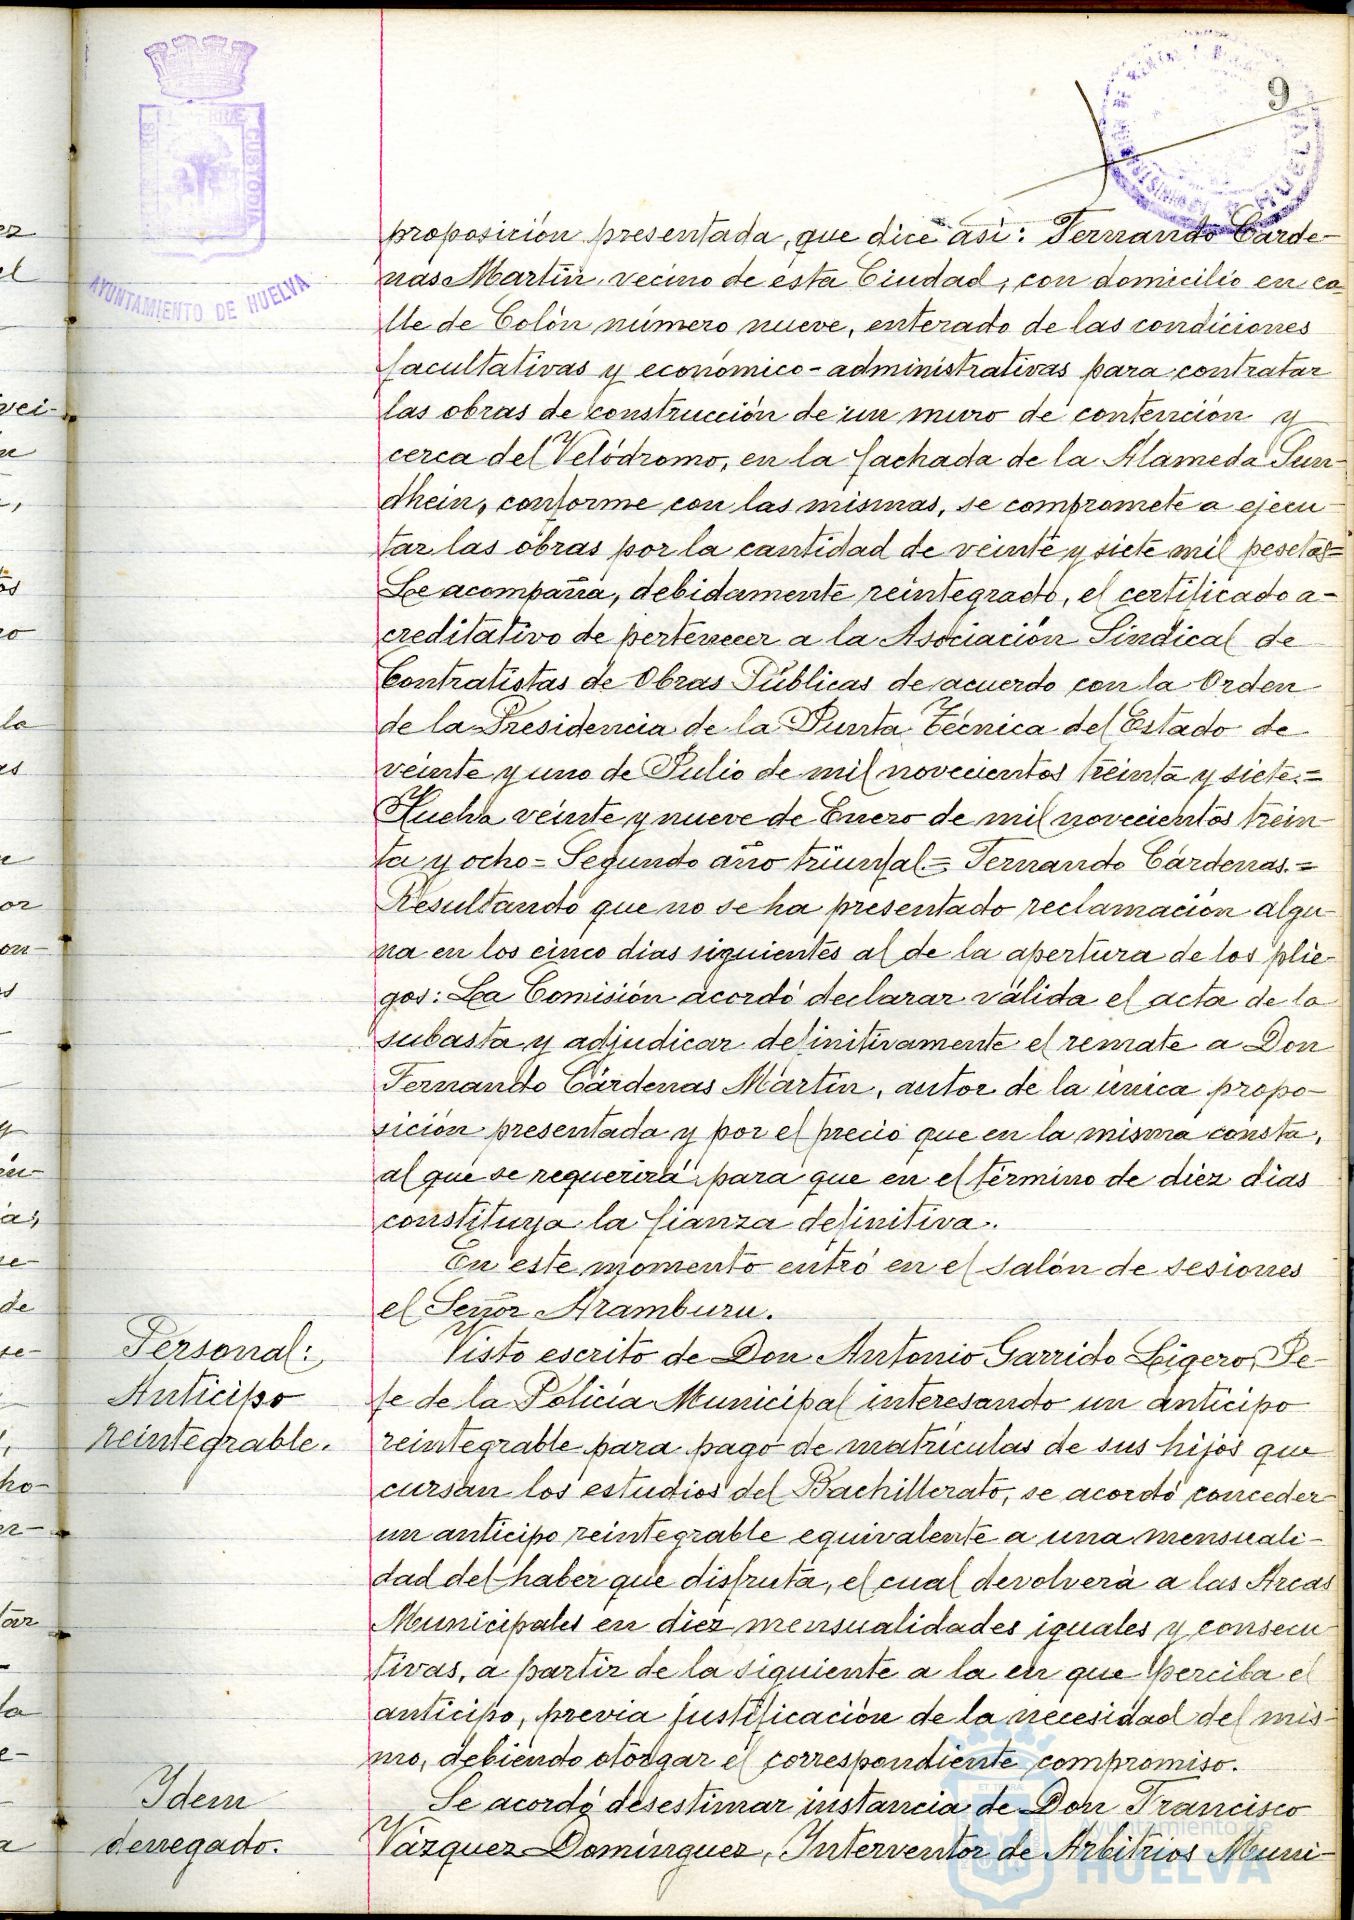 9
AYUNTAMIENTO DE HUELVA
CUSTODIA
proposición presentada, que dice así: Fernando Cárde-
nas Martín, vecino de esta Ciudad, con domicilio en ca-
lle de Colón número nueve, enterado de las condiciones
facultativas y económico-administrativas para contratar
las obras de construcción de un muro de contención y
cerca del Velódromo, en la fachada de la Alameda Sun-
dhein, conforme con las mismas, se compromete a ejecu-
tar las obras por la cantidad de veinte y siete mil pesetas=
Se acompaña, debidamente reintegrado, el certificado a-
creditativo de pertenecer a la Asociación Sindical de
Contratistas de Obras Públicas de acuerdo con la Orden
de la Presidencia de la Junta Técnica del Estado de
veinte y uno de Julio de mil novecientos treinta y siete.=
Huelva veinte y nueve de Enero de mil novecientos trein-
ta y ocho= Segundo año triunfal.= Fernando Cárdenas.=
Resultando que no se ha presentado reclamación algu-
na en los cinco dias siguientes al de la apertura de los plie-
gos: La Comisión acordó declarar válida el acta de la
subasta y adjudicar definitivamente el remate a Don
Fernando Cárdenas Martín, autor de la única propo-
sición presentada y por el precio que en la misma consta,
al que se requerirá para que en el término de diez dias
constituya la fianza definitiva.
En este momento entró en el salón de sesiones
el Señor Aramburu.
Personal:
Anticipo
reintegrable.
Visto escrito de Don Antonio Garrido Ligero, Je-
fe de la Policía Municipal interesando un anticipo
reintegrable para pago de matrículas de sus hijos que
cursan los estudios del Bachillerato, se acordó conceder
un anticipo reintegrable equivalente a una mensuali-
dad del haber que disfruta, el cual devolverá a las Arcas
Municipales en diez mensualidades iguales y consecu-
tivas, a partir de la siguiente a la en que perciba el
anticipo, previa justificación de la necesidad del mis-
mo, debiendo otorgar el correspondiente compromiso.
Idem
denegado.
Se acordó desestimar instancia de Don Francisco
Vázquez Domínguez, Interventor de Arbitrios Muni-
Ayuntamiento de
HUELVA